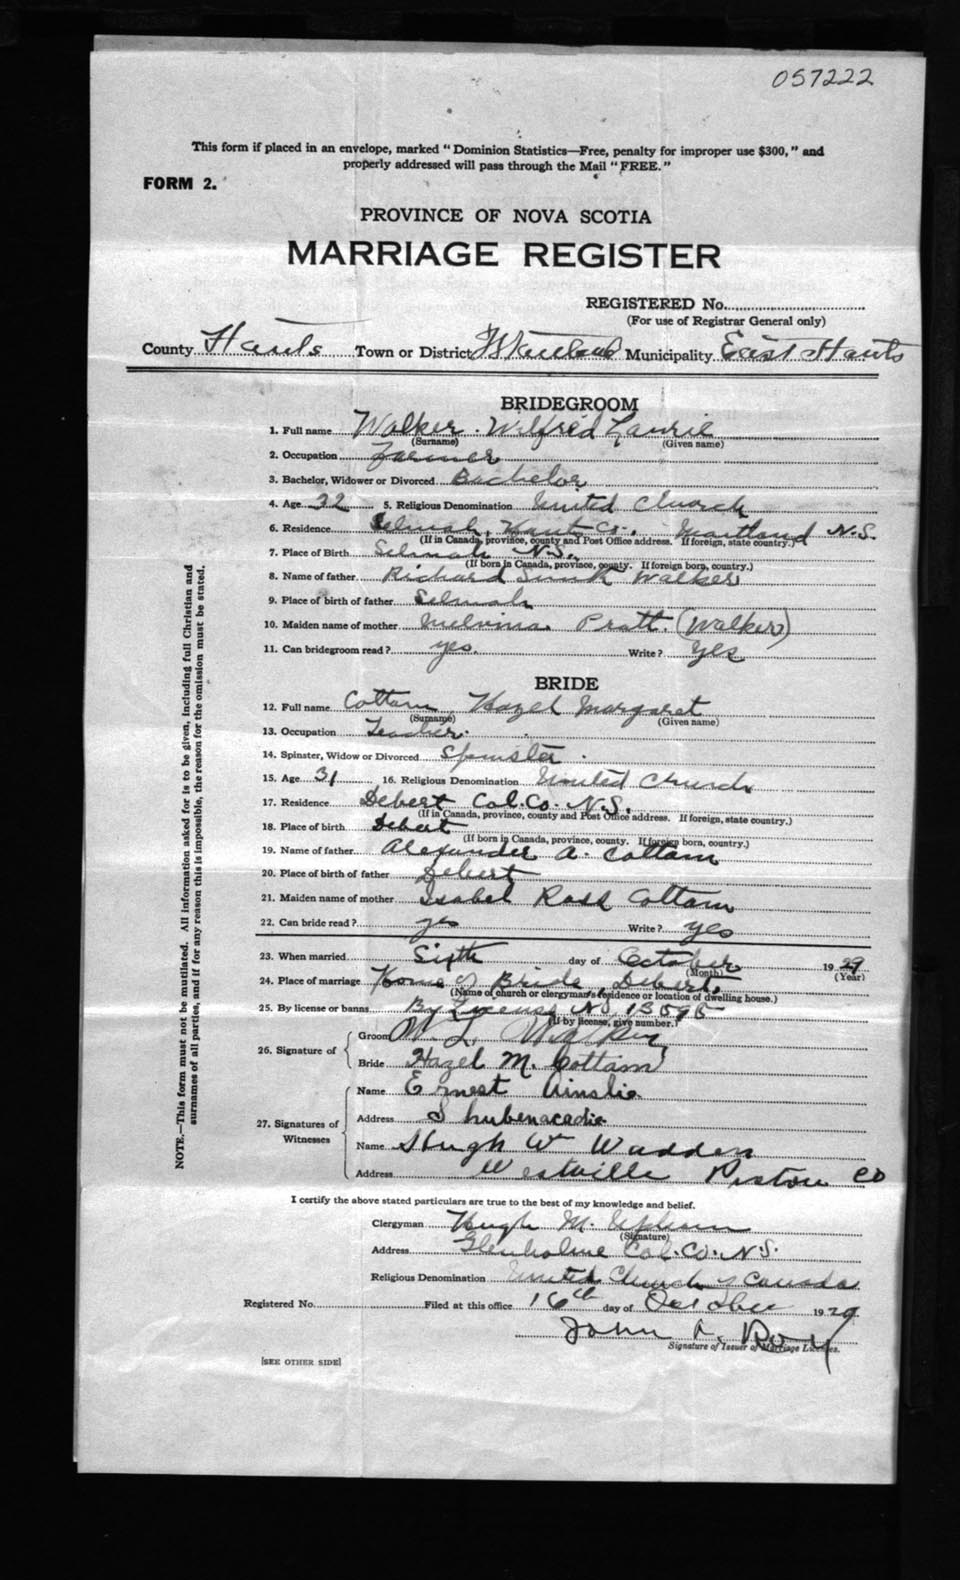 057222
This form if placed in an envelope, marked "Dominion Statistics—Free, penalty for improper use $300," and
properly addressed will pass through the Mail "FREE."
FORM 2.
PROVINCE OF NOVA SCOTIA
MARRIAGE REGISTER
REGISTERED No.
(For use of Registrar General only)
County Hants Town or District Municipality East Hants
BRIDEGROOM
1. Full name Walker Wilfred Laurie
(Surname) (Given name)
2. Occupation Farmer
3. Bachelor, Widower or Divorced Bachelor
4. Age 32 5. Religious Denomination United Church
6. Residence Selmah, Hants Co., Maitland N.S.
(If in Canada, province, county and Post Office address. If foreign, state country.)
7. Place of Birth Selmah N.S.
(If born in Canada, province, county. If foreign born, country.)
8. Name of father Richard Walker
9. Place of birth of father Selmah
10. Maiden name of mother Melvina Pratt. (Walker)
11. Can bridegroom read? yes. Write? Yes
BRIDE
12. Full name Cottam, Hazel Margaret
(Surname) (Given name)
13. Occupation Teacher.
14. Spinster, Widow or Divorced Spinster
15. Age 31 16. Religious Denomination United Church
17. Residence Debert Col. Co. N.S.
(If in Canada, province, county and Post Office address. If foreign, state country.)
18. Place of birth Debert
(If born in Canada, province, county. If foreign born, country.)
19. Name of father Alexander A. Cottam
20. Place of birth of father Debert
21. Maiden name of mother Isabel Ross Cottam
22. Can bride read? yes Write? yes
23. When married Sixth day of October 1929
(Month) (Year)
24. Place of marriage Home of Bride, Debert.
(Name of church or clergyman's residence or location of dwelling house.)
25. By license or banns By License No.
(If by license, give number.)
26. Signature of Groom W. L. Walker
Bride Hazel M. Cottam
27. Signatures of Witnesses
Name Ernest Ainslie
Address Shubenacadie
Name Hugh W Wadden
Address Westville Pictou Co
I certify the above stated particulars are true to the best of my knowledge and belief.
Clergyman Hugh M. Upham
(Signature)
Address Glenholme Col. Co. N.S.
Religious Denomination United Church of Canada
Registered No. Filed at this office 16th day of October 1929
John A. Roy
Signature of Issuer of Marriage Licenses.
[SEE OTHER SIDE]
NOTE.—This form must not be mutilated. All information asked for is to be given, including full Christian and
surnames of all parties, and if for any reason this is impossible, the reason for the omission must be stated.